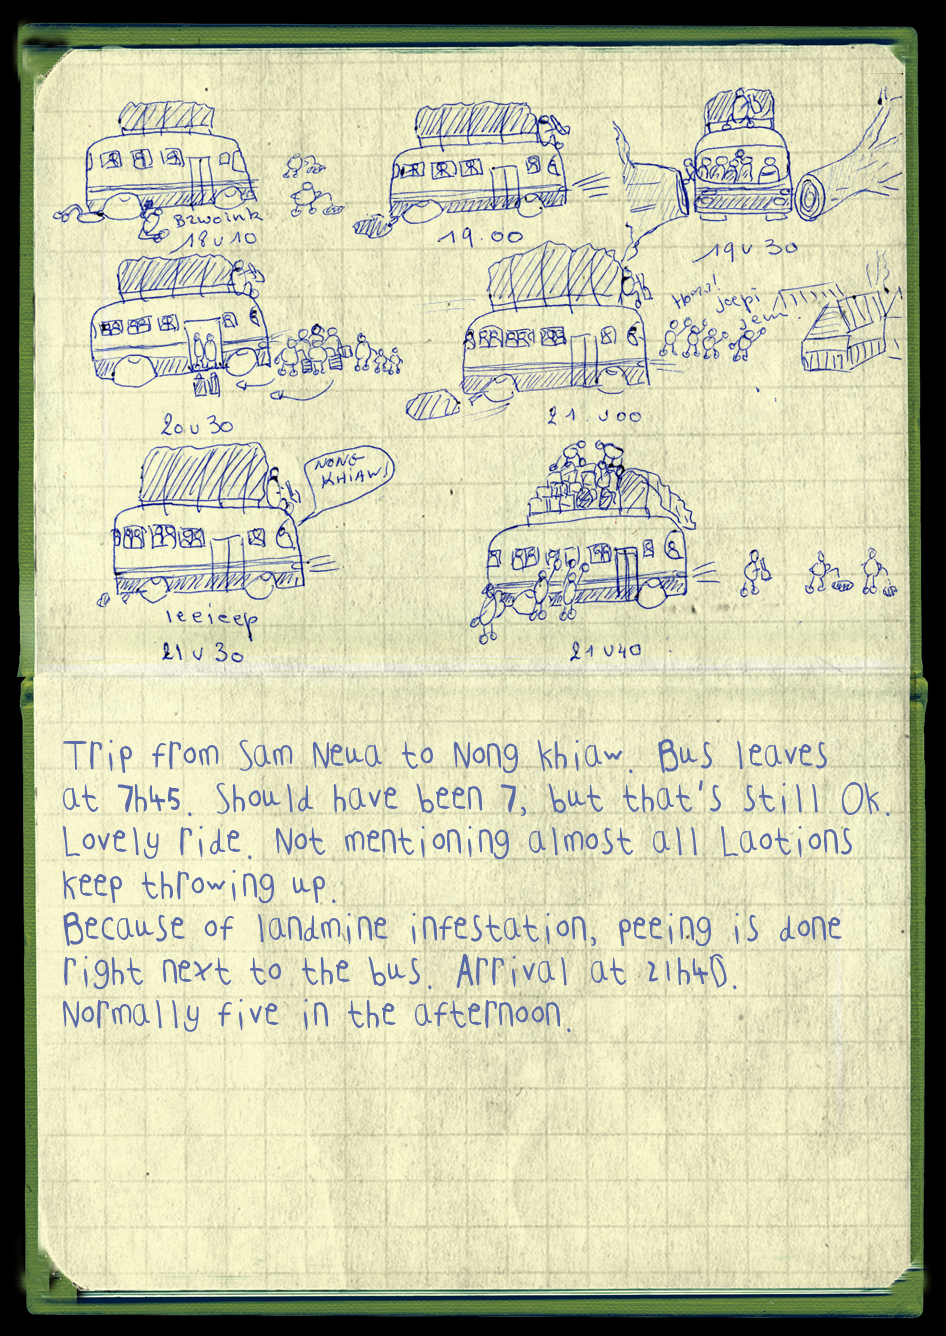 Bzwoink
18u10
19.00
19u30
20u30
Hoera!
joepi
jem!
21.u00
NONG
KHIAW!
ieeieep
21u30
21u40
Trip from Sam Neua to Nong Khiaw. Bus leaves
at 7h45. Should have been 7, but that's still Ok.
Lovely ride. Not mentioning almost all Laotions
keep throwing up.
Because of landmine infestation, peeing is done
right next to the bus. Arrival at 21h40.
Normally five in the afternoon.